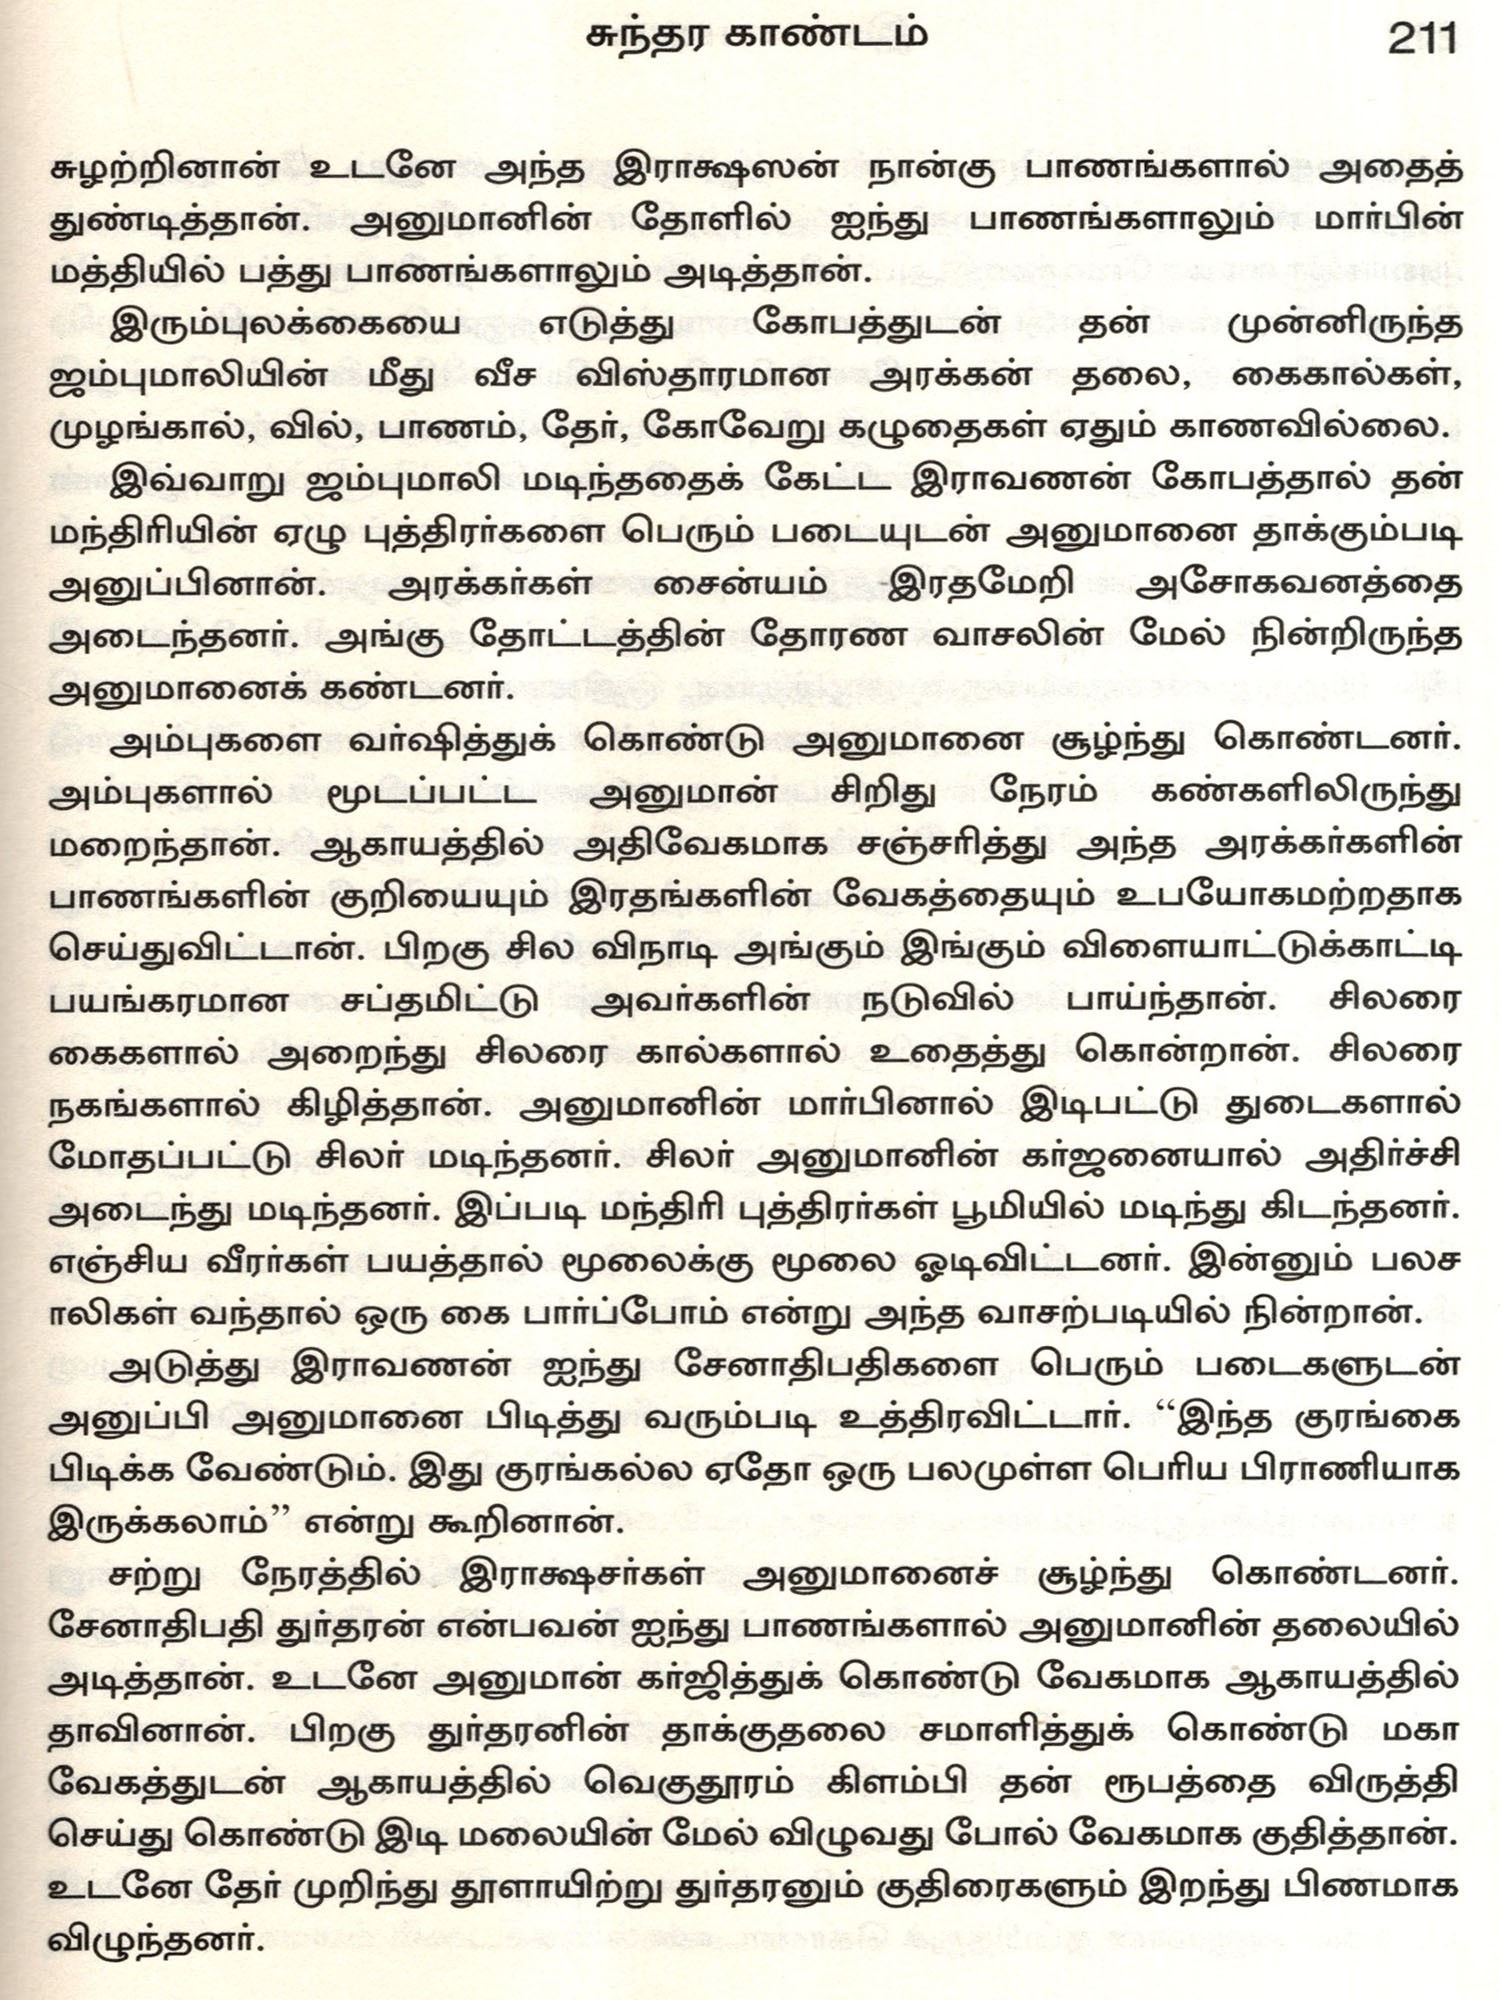 சுந்தர காண்டம்
211
சுழற்றினான் உடனே அந்த இராக்ஷஸன் நான்கு பாணங்களால் அதைத்
துண்டித்தான். அனுமானின் தோளில் ஐந்து பாணங்களாலும் மார்பின்
மத்தியில் பத்து பாணங்களாலும் அடித்தான்.
இரும்புலக்கையை எடுத்து கோபத்துடன் தன் முன்னிருந்த
ஜம்புமாலியின் மீது வீச விஸ்தாரமான அரக்கன் தலை, கைகால்கள்,
முழங்கால், வில், பாணம், தேர், கோவேறு கழுதைகள் ஏதும் காணவில்லை.
இவ்வாறு ஜம்புமாலி மடிந்ததைக் கேட்ட இராவணன் கோபத்தால் தன்
மந்திரியின் ஏழு புத்திரர்களை பெரும் படையுடன் அனுமானை தாக்கும்படி
அனுப்பினான். அரக்கர்கள் சைன்யம் இரதமேறி அசோகவனத்தை
அடைந்தனர். அங்கு தோட்டத்தின் தோரண வாசலின் மேல் நின்றிருந்த
அனுமானைக் கண்டனர்.
அம்புகளை வர்ஷித்துக் கொண்டு அனுமானை சூழ்ந்து கொண்டனர்.
அம்புகளால் மூடப்பட்ட அனுமான் சிறிது நேரம் கண்களிலிருந்து
மறைந்தான். ஆகாயத்தில் அதிவேகமாக சஞ்சரித்து அந்த அரக்கர்களின்
பாணங்களின் குறியையும் இரதங்களின் வேகத்தையும் உபயோகமற்றதாக
செய்துவிட்டான். பிறகு சில விநாடி அங்கும் இங்கும் விளையாட்டுக்காட்டி
பயங்கரமான சப்தமிட்டு அவர்களின் நடுவில் பாய்ந்தான். சிலரை
கைகளால் அறைந்து சிலரை கால்களால் உதைத்து கொன்றான். சிலரை
நகங்களால் கிழித்தான். அனுமானின் மார்பினால் இடிபட்டு துடைகளால்
மோதப்பட்டு சிலர் மடிந்தனர். சிலர் அனுமானின் கர்ஜனையால் அதிர்ச்சி
அடைந்து மடிந்தனர். இப்படி மந்திரி புத்திரர்கள் பூமியில் மடிந்து கிடந்தனர்.
எஞ்சிய வீரர்கள் பயத்தால் மூலைக்கு மூலை ஓடிவிட்டனர். இன்னும் பலச
ாலிகள் வந்தால் ஒரு கை பார்ப்போம் என்று அந்த வாசற்படியில் நின்றான்.
அடுத்து இராவணன் ஐந்து சேனாதிபதிகளை பெரும் படைகளுடன்
அனுப்பி அனுமானை பிடித்து வரும்படி உத்திரவிட்டார். “இந்த குரங்கை
பிடிக்க வேண்டும். இது குரங்கல்ல ஏதோ ஒரு பலமுள்ள பெரிய பிராணியாக
இருக்கலாம்” என்று கூறினான்.
சற்று நேரத்தில் இராக்ஷசர்கள் அனுமானைச் சூழ்ந்து கொண்டனர்.
சேனாதிபதி துர்தரன் என்பவன் ஐந்து பாணங்களால் அனுமானின் தலையில்
அடித்தான். உடனே அனுமான் கர்ஜித்துக் கொண்டு வேகமாக ஆகாயத்தில்
தாவினான். பிறகு துர்தரனின் தாக்குதலை சமாளித்துக் கொண்டு மகா
வேகத்துடன் ஆகாயத்தில் வெகுதூரம் கிளம்பி தன் ரூபத்தை விருத்தி
செய்து கொண்டு இடி மலையின் மேல் விழுவது போல் வேகமாக குதித்தான்.
உடனே தேர் முறிந்து தூளாயிற்று துர்தரனும் குதிரைகளும் இறந்து பிணமாக
விழுந்தனர்.